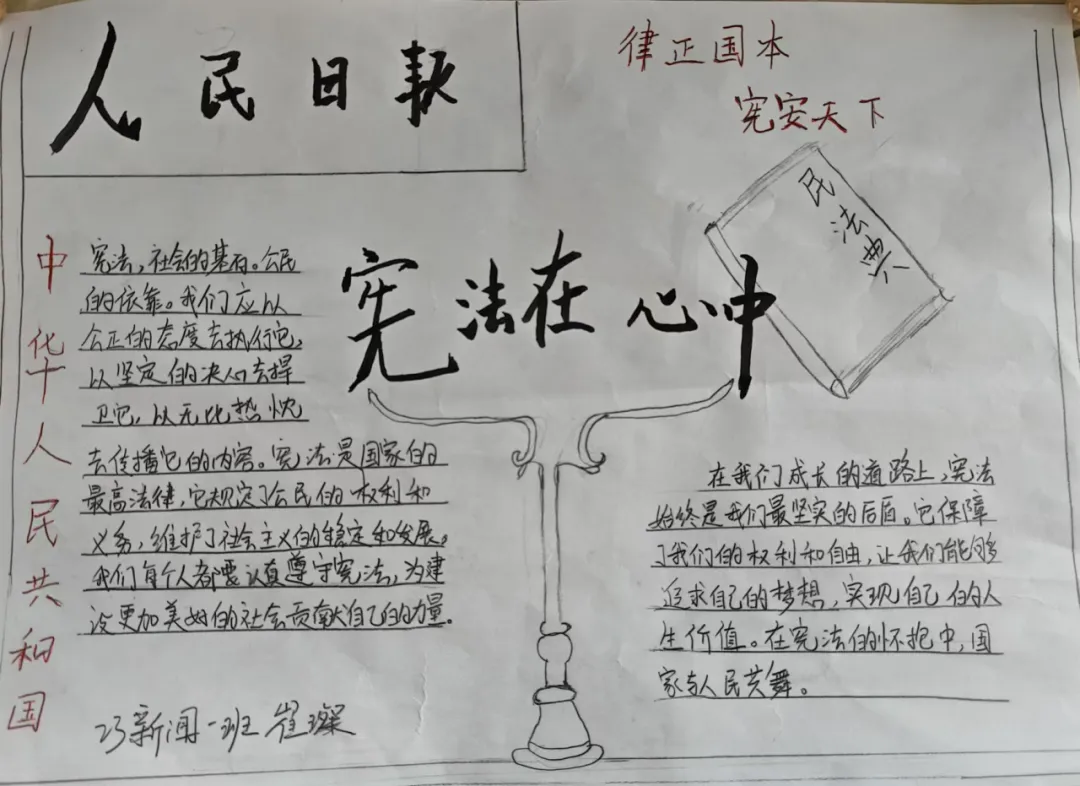 人民日报
律正国本
宪安天下
民法典
宪法在心中
中华人民共和国
宪法,社会的基石。公民
的依靠。我们应以
公正的态度去执行它,
以坚定的决心去捍
卫它,以无比热忱
去传播它的内容。宪法是国家的
最高法律,它规定了公民的权利和
义务,维护了社会主义的稳定和发展。
我们每个人都要认真遵守宪法,为建
设更加美好的社会贡献自己的力量。
在我们成长的道路上,宪法
始终是我们最坚实的后盾。它保障
了我们的权利和自由,让我们能够
追求自己的梦想,实现自己的人
生价值。在宪法的怀抱中,国
家与人民共舞。
23新闻一班 崔璨